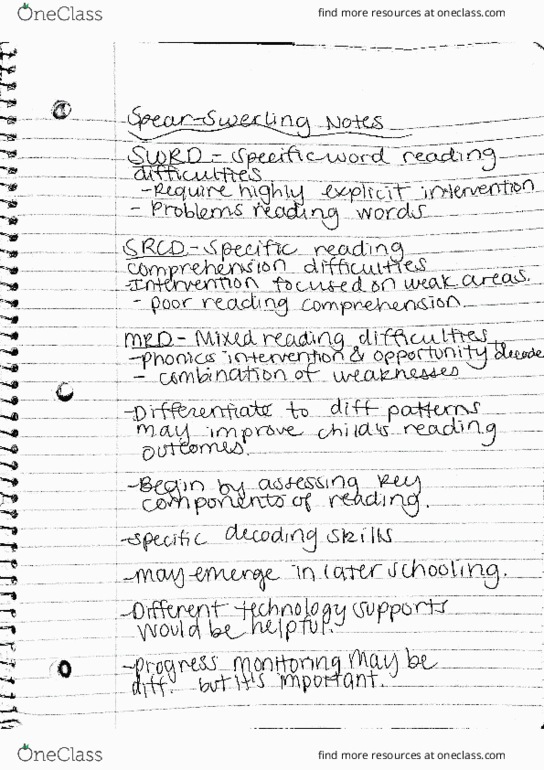 OneClass
find more resources at oneclass.com
Spear-Swerling Notes
SWRD - Specific word reading
difficulties
- Require highly explicit intervention
- Problems reading words
SRCD - Specific reading
comprehension difficulties
- Intervention focused on weak areas.
- poor reading comprehension
MRD - Mixed reading difficulties
- Phonics intervention & opportunity decode
- combination of weaknesses
- Differentiate to diff patterns
may improve child's reading
outcomes.
- Begin by assessing key
components of reading.
- specific decoding skills
- may emerge in later schooling.
- Different technology supports
would be helpful.
- progress monitoring may be
diff. but it's important.
OneClass
find more resources at oneclass.com